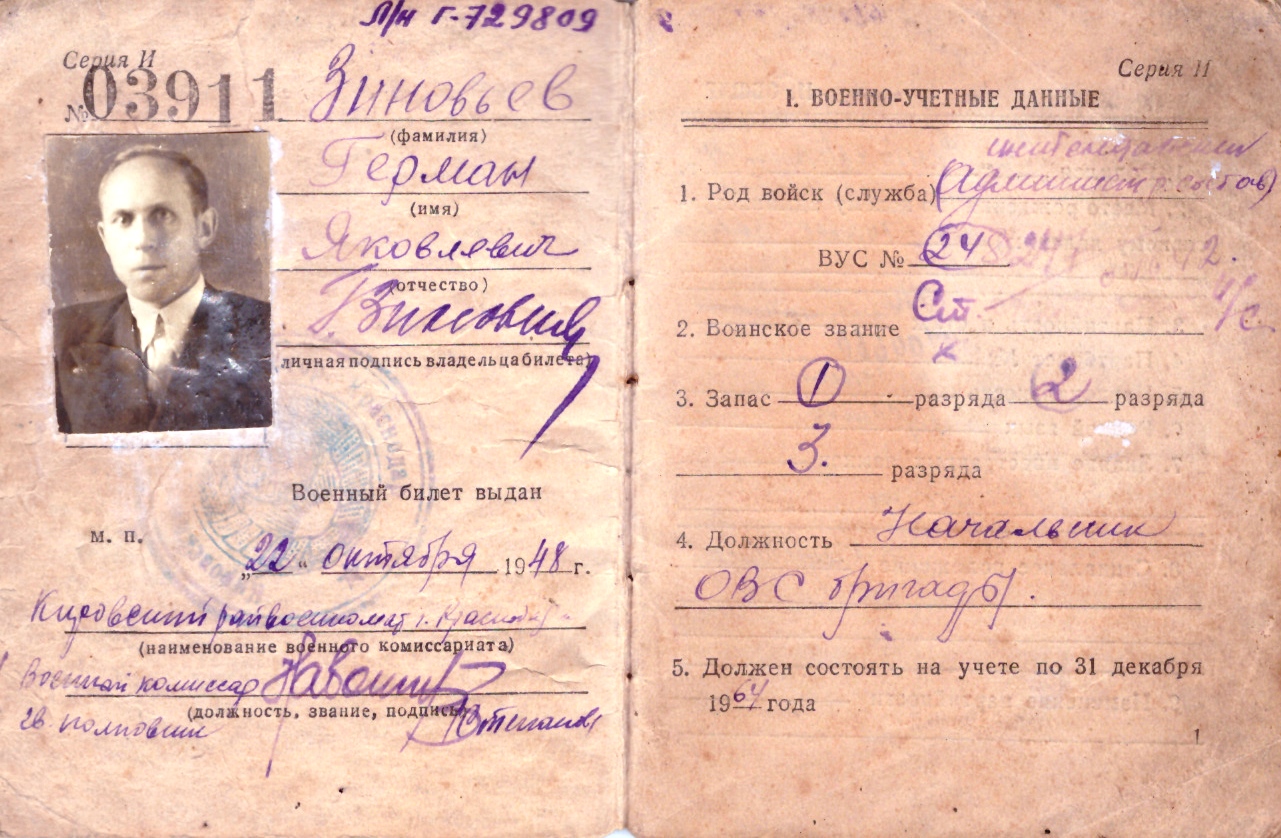 Л/н Г-729809
Серия И
№ 03911
Зиновьев
(фамилия)
Герман
(имя)
Яковлевич
(отчество)
Г. Зиновьев
(личная подпись владельца билета)
Военный билет выдан
м. п.
„22“ октября 1948 г.
Кировский райвоенкомат г.
(наименование военного комиссариата)
Военный комиссар
(должность, звание, подпись)
гв. полковник Степанов
Серия И
I. ВОЕННО-УЧЕТНЫЕ ДАННЫЕ
1. Род войск (служба) (Админист. состав)
ВУС № 248
2. Воинское звание Ст.
3. Запас 1 разряда 2 разряда
3. разряда
4. Должность Начальник
ОВС бригады.
5. Должен состоять на учете по 31 декабря
1964 года
1